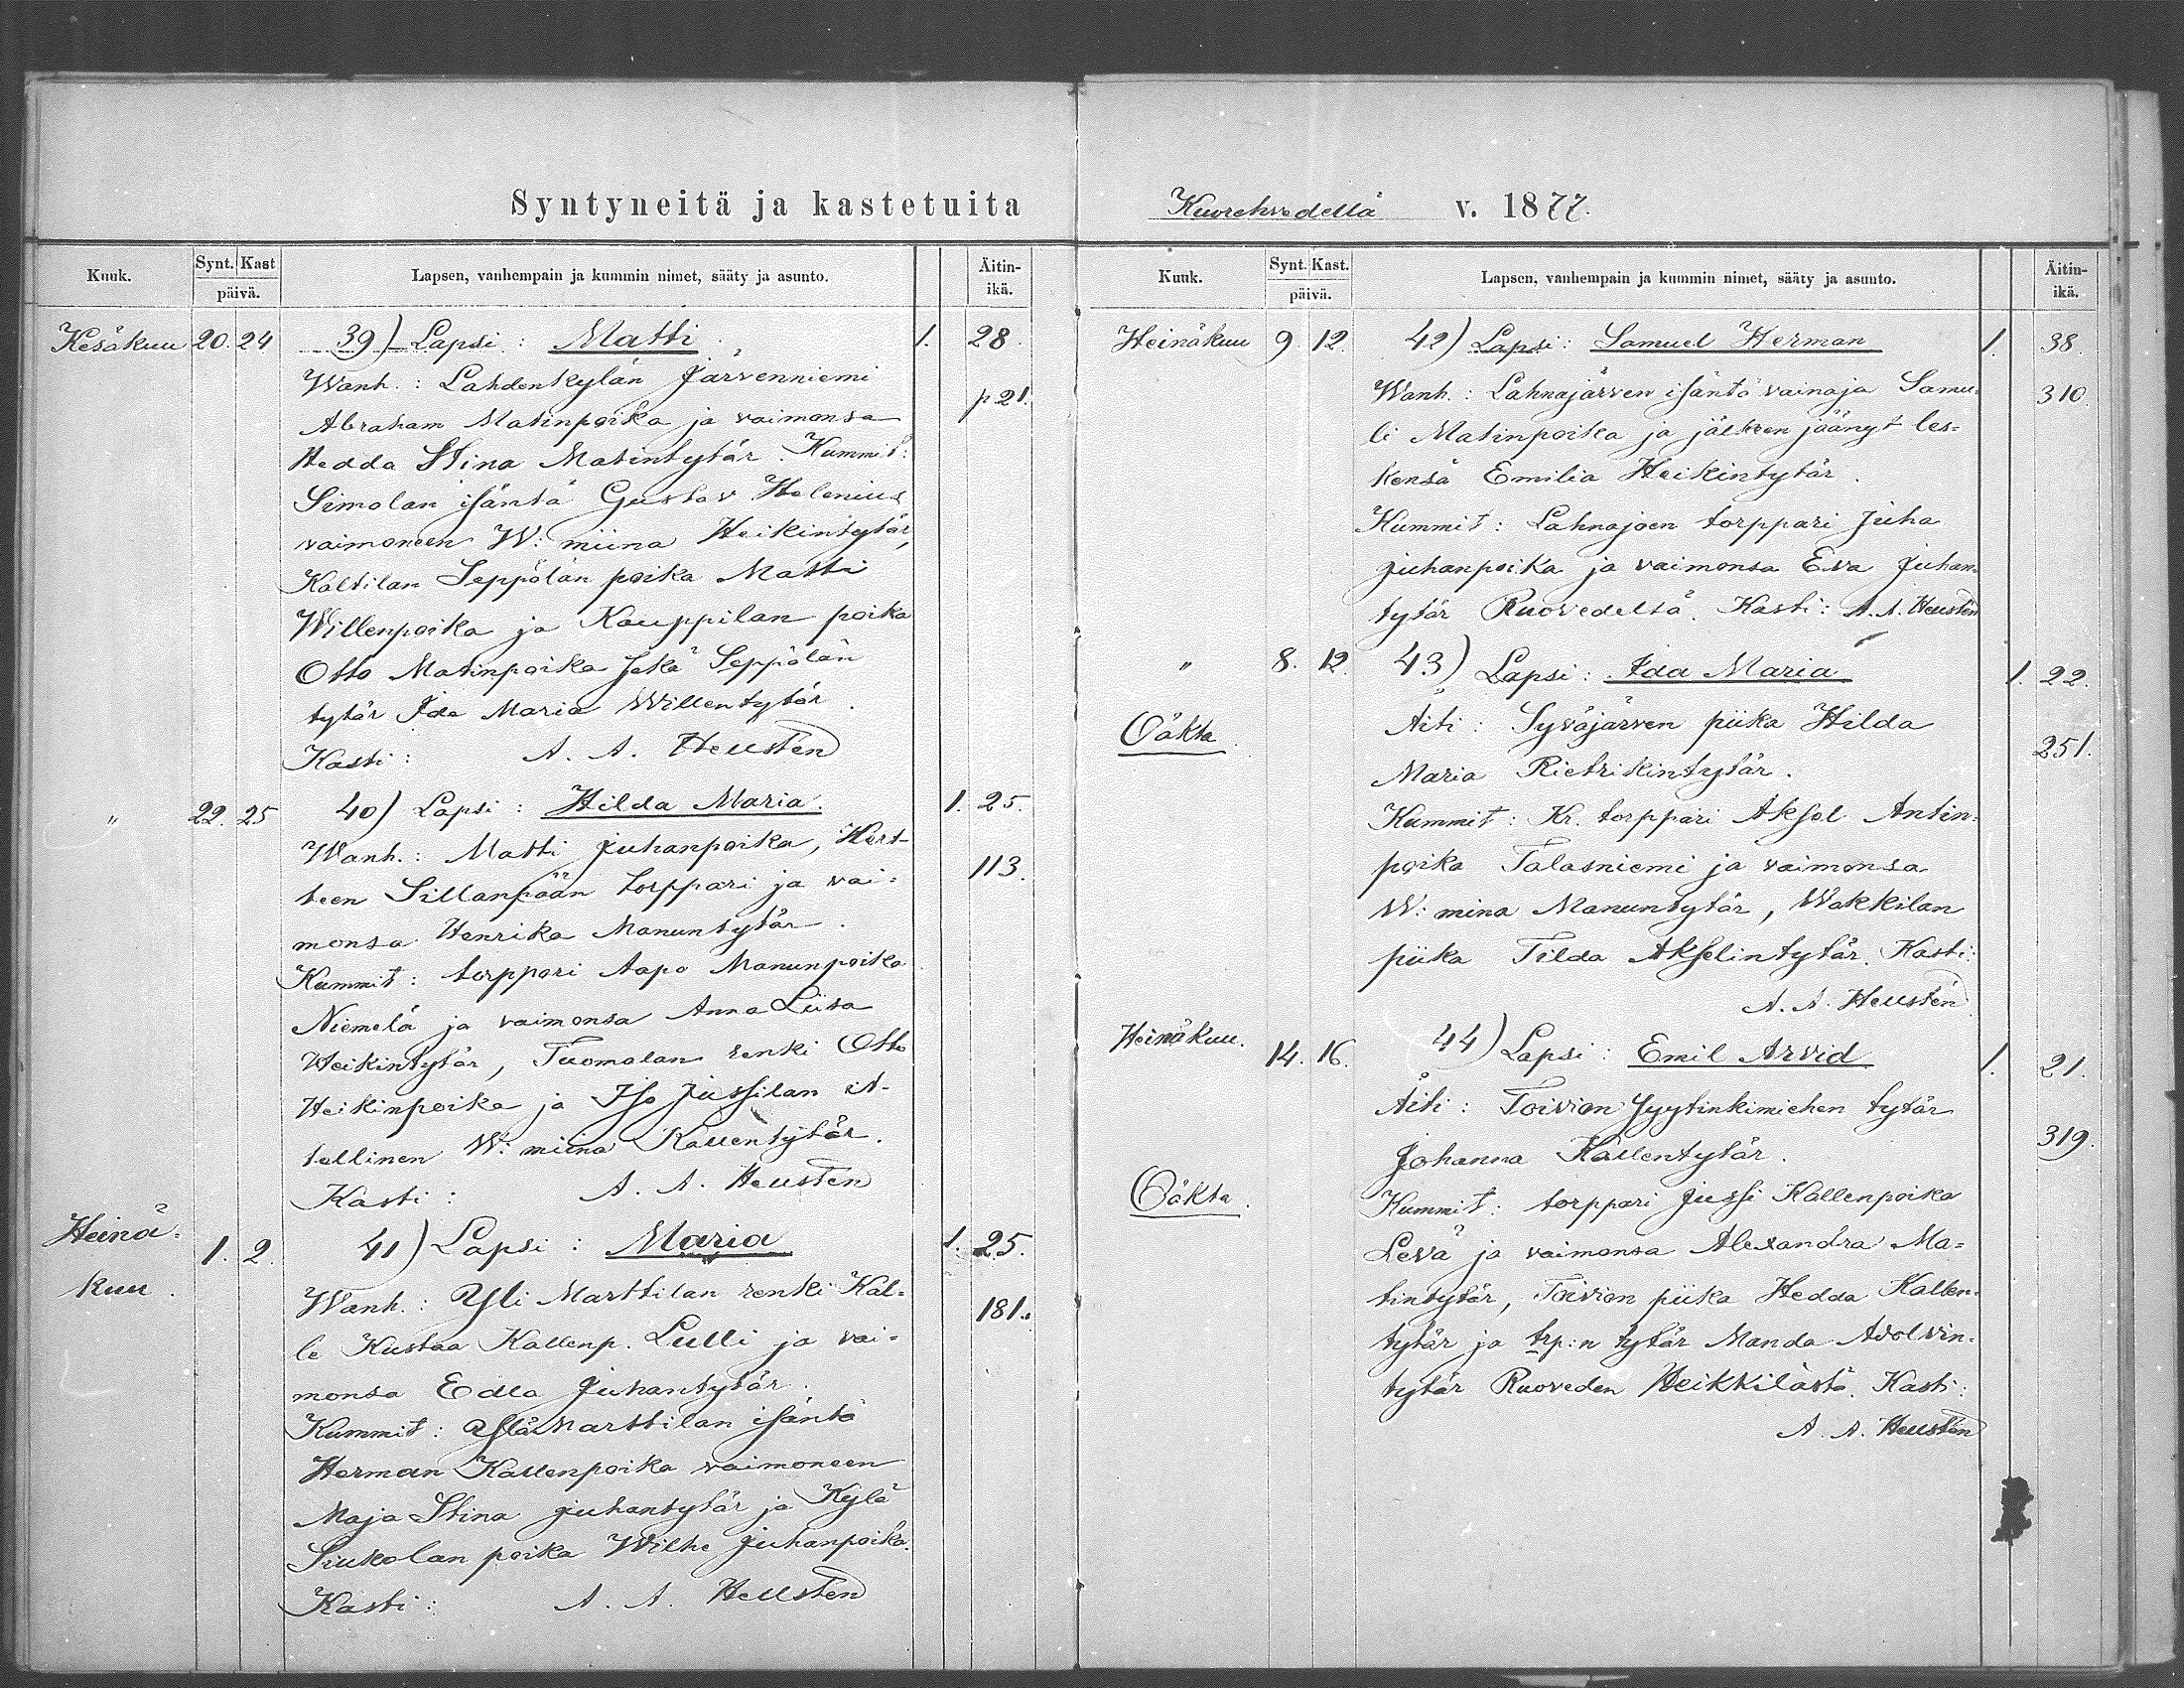 Syntyneitä ja kastetuita
Kuorehvedellä v. 1877.
Kuuk. Synt. Kast päivä. Lapsen, vanhempain ja kummin nimet, sääty ja asunto. Äitin-ikä.
Kesäkuu 20. 24 39) Lapsi: Matti. 1. 28.
Wanh.: Lahdenkylän Järvenniemi
p 21.
Abraham Matinpoika ja vaimonsa
Hedda Stina Matintytär. Kummit:
Simolan isäntä Gustav Helenius
vaimoneen W: miina Heikintytär,
Kaltilan Seppälän poika Matti
Willenpoika ja Kauppilan poika
Otto Matinpoika sekä Seppälän
tytär Ida Maria Willentytär.
Kasti: A. A. Hellstén
" 22. 25 40) Lapsi: Hilda Maria. 1. 25.
Wanh.: Matti Juhanpoika, Hert-
113.
teen Sillanpään torppari ja vai-
monsa Henrika Manuntytär.
Kummit: torppari Aapo Manunpoika
Niemelä ja vaimonsa Anna Liisa
Heikintytär, Tuomalan renki Otto
Heikinpoika ja Iso Jussilan it-
tellinen W: miina Kallentytär.
Kasti: A. A. Hellstén
Heinä-
kuu.
1. 2. 41) Lapsi: Maria 1. 25.
Wanh.: Yli Marttilan renki Kal-
181.
le Kustaa Kallenp. Lulli ja vai-
monsa Edla Juhantytär.
Kummit: Ylä Marttilan isäntä
Herman Kallenpoika vaimoneen
Maja Stina Juhantytär ja Kylä
Siukolan poika Wilhe Juhanpoika.
Kasti: A. A. Hellstén
Kuuk. Synt. Kast. päivä. Lapsen, vanhempain ja kummin nimet, sääty ja asunto. Äitin-ikä.
Heinäkuu 9. 12. 42) Lapsi: Samuel Herman 1. 38.
Wanh.: Lahnajärven isäntä vainaja Samu-
310.
li Matinpoika ja jälkeen jäänyt les-
kensä Emilia Heikintytär.
Kummit: Lahnajoen torppari Juha
Juhanpoika ja vaimonsa Eva Juhan-
tytär Ruovedeltä. Kasti: A. A. Hellstén
" 8. 12. 43) Lapsi: Ida Maria 1. 22.
Öäkta. Äiti: Syväjärven piika Hilda
251.
Maria Rietrikintytär.
Kummit: Kr. torppari Aksel Antin-
poika Talasniemi ja vaimonsa
W: mina Manuntytär, Wakkilan
piika Tilda Akselintytär. Kasti:
A. A. Hellstén
Heinäkuu. 14. 16. 44) Lapsi: Emil Arvid 1. 21.
Äiti: Toivion Jyytinkimiehen tytär
319.
Johanna Kallentytär.
Öäkta. Kummit: torppari Jussi Kallenpoika
Levä ja vaimonsa Alexandra Ma-
tintytär, Toivion piika Hedda Kallen-
tytär ja trp:n tytär Manda Advlvin-
tytär Ruoveden Heikkilästä. Kasti:
A. A. Hellstén